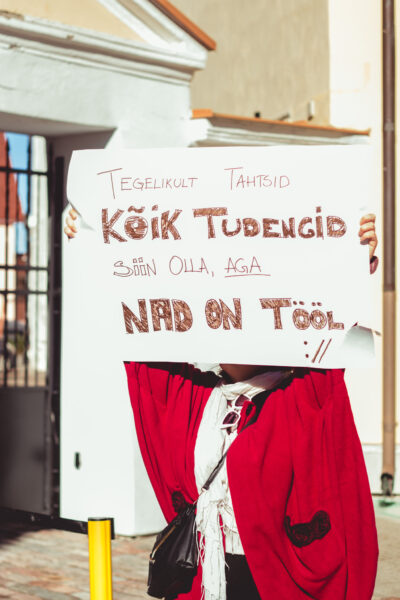 Tegelikult Tahtsid
KÕIK TUDENGID
SIIN OLLA, AGA
NAD ON TÖÖL
://